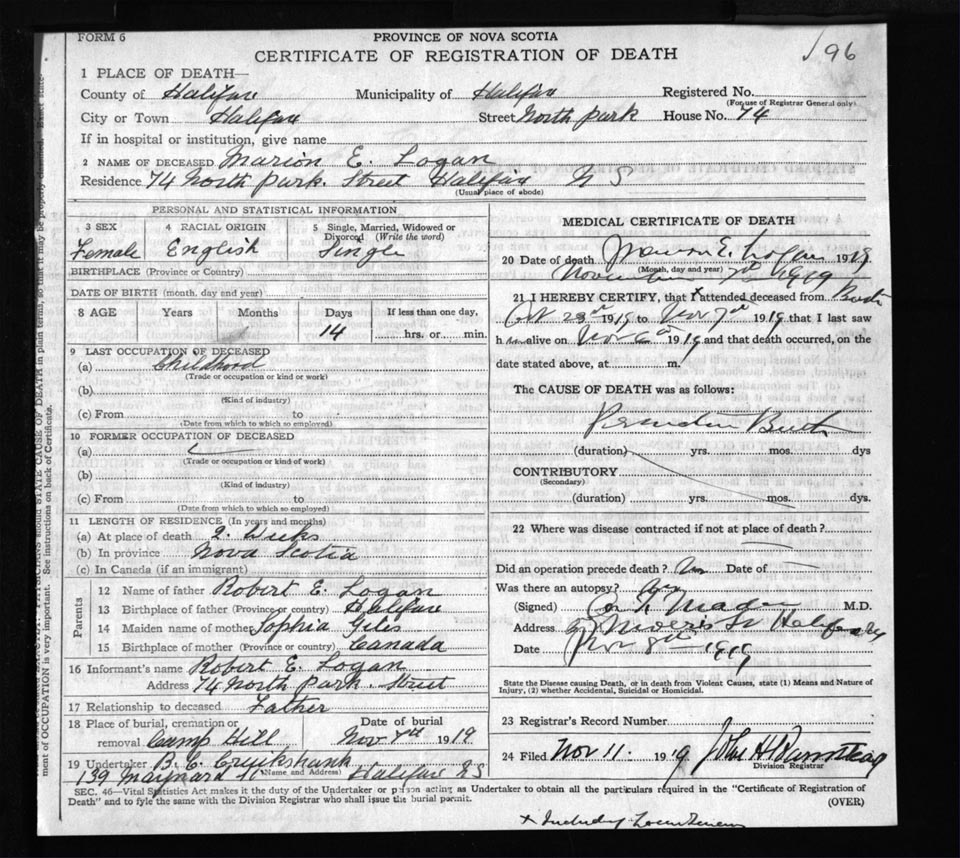 FORM 6
PROVINCE OF NOVA SCOTIA
CERTIFICATE OF REGISTRATION OF DEATH
96
1 PLACE OF DEATH—
County of Halifax Municipality of Halifax Registered No.
(For use of Registrar General only)
City or Town Halifax Street North Park House No. 74
If in hospital or institution, give name
2 NAME OF DECEASED Marion E. Logan
Residence 74 North Park. Street Halifax N S
(Usual place of abode)
PERSONAL AND STATISTICAL INFORMATION
3 SEX 4 RACIAL ORIGIN 5 Single, Married, Widowed or Divorced (Write the word)
Female English Single
BIRTHPLACE (Province or Country)
DATE OF BIRTH (month, day and year)
8 AGE Years Months Days If less than one day,
14 hrs. or min.
9 LAST OCCUPATION OF DECEASED
(a) Childhood
(Trade or occupation or kind or work)
(b)
(Kind of industry)
(c) From to
(Date from which to which so employed)
10 FORMER OCCUPATION OF DECEASED
(a)
(Trade or occupation or kind of work)
(b)
(Kind of industry)
(c) From to
(Date from which to which so employed)
11 LENGTH OF RESIDENCE (In years and months)
(a) At place of death 2. Weeks
(b) In province Nova Scotia
(c) In Canada (if an immigrant)
Parents
12 Name of father Robert E. Logan
13 Birthplace of father (Province or country) Halifax
14 Maiden name of mother Sophia Giles
15 Birthplace of mother (Province or country) Canada
16 Informant's name Robert E. Logan
Address 74 North Park. Street
17 Relationship to deceased Father
18 Place of burial, cremation or removal Camp Hill Date of burial Nov 7th 1919
19 Undertaker B. C. Cruikshank
(Name and Address)
139 Maynard St Halifax NS
MEDICAL CERTIFICATE OF DEATH
20 Date of death Marion E. Logan 1919
(Month, day and year)
November 7th 1919
21 I HEREBY CERTIFY, that I attended deceased from Birth
Oct 1919 to Nov 7th 1919 that I last saw
h alive on Nov 6th 1919 and that death occurred, on the
date stated above, at m.
The CAUSE OF DEATH was as follows:
Birth
(duration) yrs. mos. dys
CONTRIBUTORY
(Secondary)
(duration) yrs. mos. dys.
22 Where was disease contracted if not at place of death?
Did an operation precede death? No Date of
Was there an autopsy?
(Signed) M.D.
Address Morris St Halifax
Date Nov 8th 1919
State the Disease causing Death, or in death from Violent Causes, state (1) Means and Nature of
Injury, (2) whether Accidental, Suicidal or Homicidal.
23 Registrar's Record Number
24 Filed Nov 11. 1919
Division Registrar
SEC. 46—Vital Statistics Act makes it duty of the Undertaker or person acting as Undertaker to obtain all the particulars required in the "Certificate of Registration of
Death" and to fyle the same with the Division Registrar who shall issue the burial permit.
(OVER)